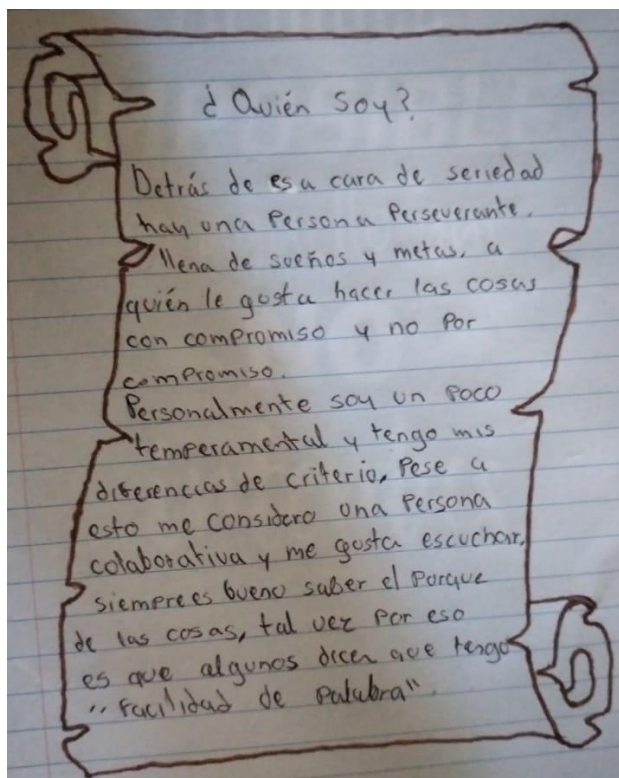 ¿Quién soy?
Detrás de esa cara de seriedad
hay una Persona Perseverante.
llena de sueños y metas, a
quién le gusta hacer las cosas
con compromiso y no Por
compromiso.
Personalmente soy un Poco
temperamental y tengo mis
diferencias de criterio, Pese a
esto me considero una Persona
colaborativa y me gusta escuchar,
siempre es bueno saber el Porque
de las cosas, tal vez Por eso
es que algunos dicen que tengo
"Facilidad de Palabra".